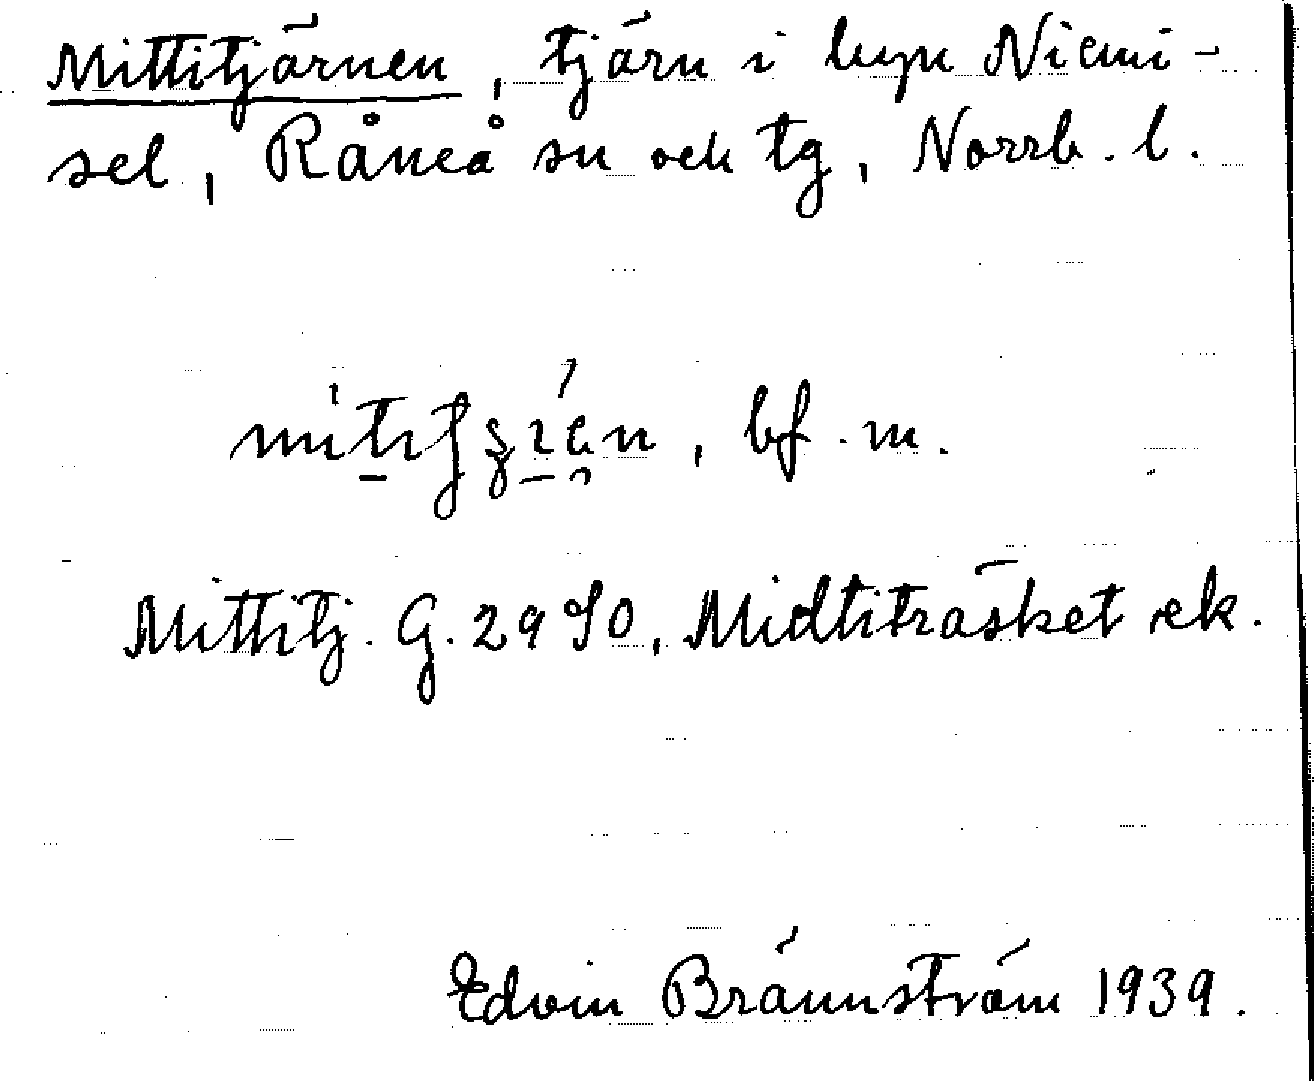 Mittitjärnen, tjärn i byn Niemi-
sel, Råneå sn och tg, Norrb. l.
bf. m.
Mittitj. G. 2990, Midtiträsket ek.
Edvin Brännström 1939.